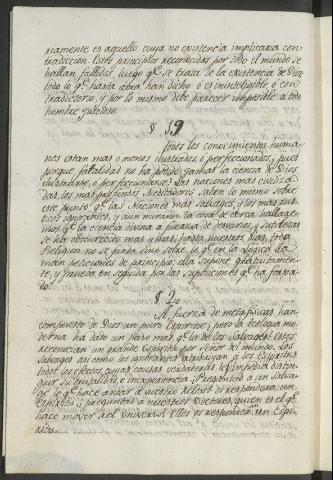 riamente es aquello cuya no existencia implicaria con
tradiccion. Estos principios reconocidos por todo el mundo se
hallan fallidos, luego qͤ se trata de la existencia de Dios
todo lo qͤ hasta ahora han dicho o es ininteligible, o con
tradictorio, y por lo mismo debe parecer imposible a todo
hombre juicioso.
§ 19
Todos los conocimientos huma
nos estan mas o menos ilustrados o perfeccionados, pues
porque fatalidad no ha podido jamas la ciencia de Dios
ilustrarse, o perfeccionarse? Las Naciones mas civiliza
das, los mas profundos Meditadores saben lo mismo sobre
este punto qͤ las Naciones mas salvajes, y los mas rus
ticos ignorantes, y aun mirando la cosa de cerca hallare
mos qͤ la ciencia divina a fuerza de desvarios, y sutilezas
se ha obscurecido mas y mas; hasta nuestros dias, toda
Religion no se funda sino sobre lo qͤ en la Logica lla
man peticiones de principio; ella supone gratuitamen
te, y prueba en seguida por las suposiciones qͤ ha forja
do.
§ 20
A fuerza de metafisicas han
compuesto de Dios un puro Espiritu; pero la teologia mo
derna ha dado un paso mas qͤ la de los Salvajes? Estos
reconocian un grande Espiritu por señor del mundo. Los
Salvajes asi como los ignorantes atribuyan à los Espiritus
todos los efectos cuyas causas verdaderas les impedia distin
guir su brutalidad e inexperiencia; Preguntad à un Salva
je lo qͤ hace andar à vuestro Relox? os respondera, un
Espiritu; y preguntad à nuestros Doctores, quien es el qͤ
hace mover al Universo? Ellos os responden, un Espi
ritu.